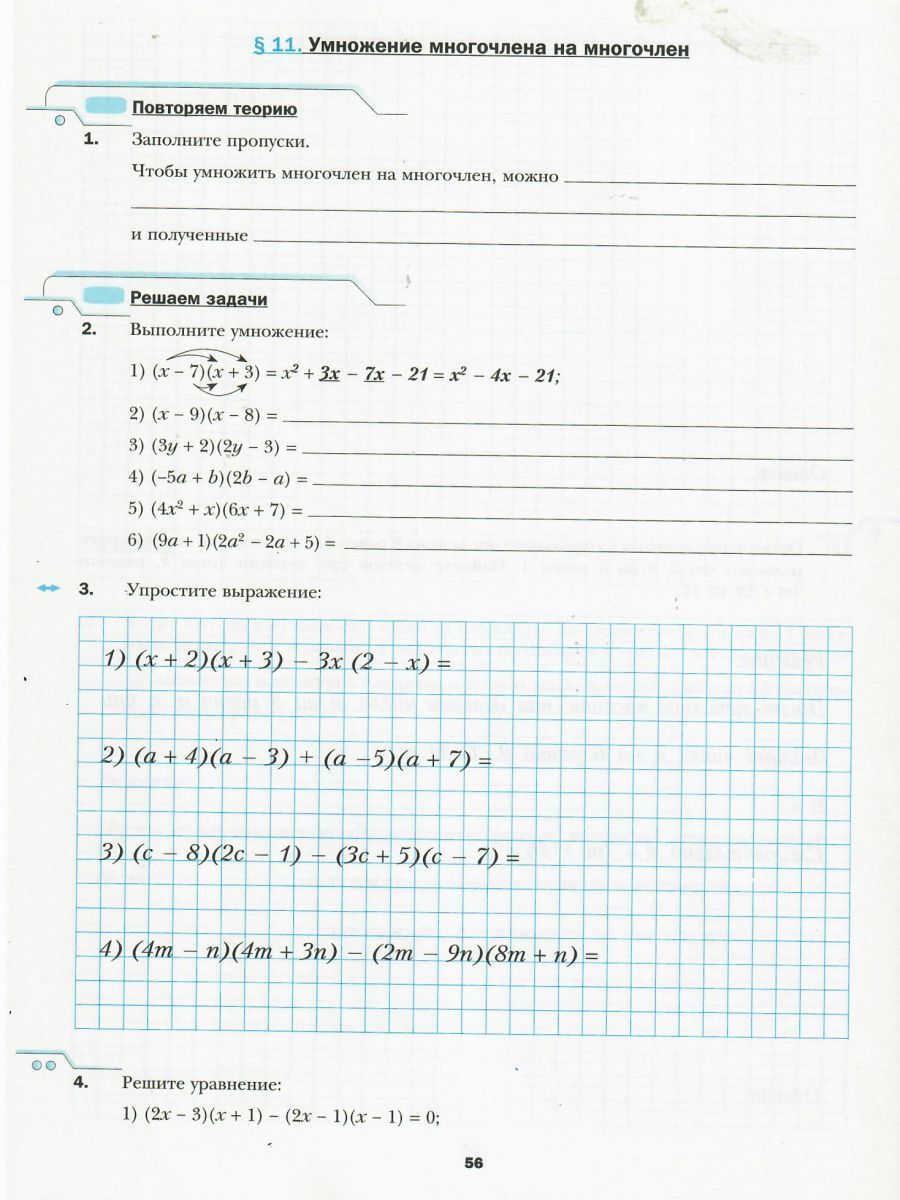 § 11. Умножение многочлена на многочлен
Повторяем теорию
1. Заполните пропуски.
Чтобы умножить многочлен на многочлен, можно
и полученные
Решаем задачи
2. Выполните умножение:
1) (x – 7)(x + 3) = x² + 3x – 7x – 21 = x² – 4x – 21;
2) (x – 9)(x – 8) =
3) (3y + 2)(2y – 3) =
4) (–5a + b)(2b – a) =
5) (4x² + x)(6x + 7) =
6) (9a + 1)(2a² – 2a + 5) =
3. Упростите выражение:
1) (x + 2)(x + 3) – 3x (2 – x) =
2) (a + 4)(a – 3) + (a –5)(a + 7) =
3) (c – 8)(2c – 1) – (3c + 5)(c – 7) =
4) (4m – n)(4m + 3n) – (2m – 9n)(8m + n) =
4. Решите уравнение:
1) (2x – 3)(x + 1) – (2x – 1)(x – 1) = 0;
56